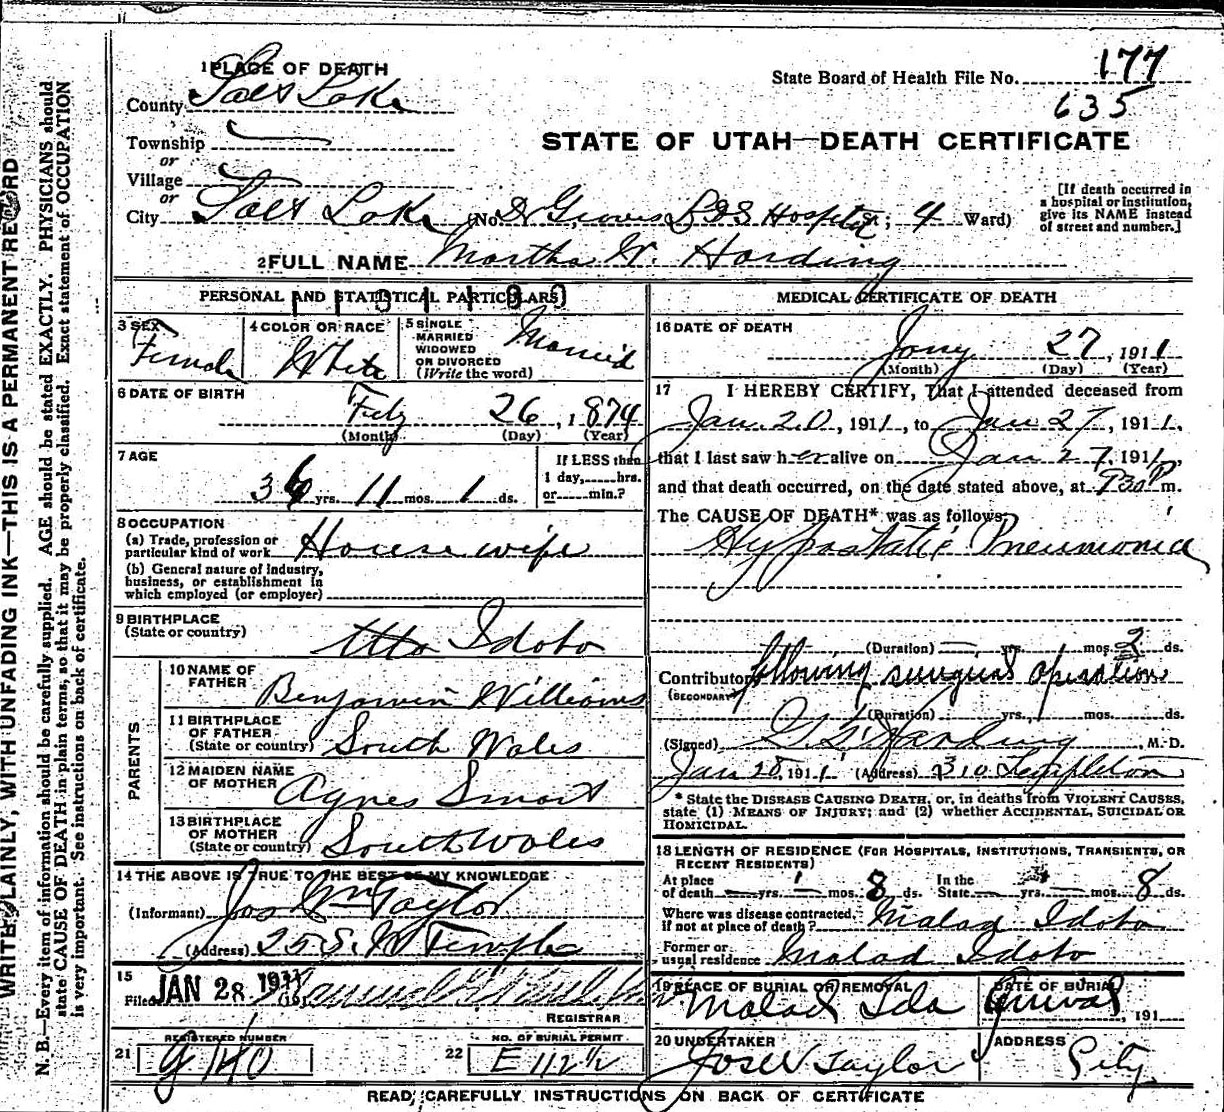 WRITE PLAINLY, WITH UNFADING INK—THIS IS A PERMANENT RECORD
N. B.—Every item of information should be carefully supplied. AGE should be stated EXACTLY. PHYSICIANS should
state CAUSE OF DEATH in plain terms, so that it may be properly classified. Exact statement of OCCUPATION
is very important. See instructions on back of certificate.
1 PLACE OF DEATH
State Board of Health File No. 177
County Salt Lake
635
STATE OF UTAH—DEATH CERTIFICATE
Township
or
Village
or
City Salt Lake (No. Dr Groves L D S Hospital St.; 4 Ward)
[If death occurred in
a hospital or institution,
give its NAME instead
of street and number.]
2 FULL NAME Martha W. Harding
PERSONAL AND STATISTICAL PARTICULARS
3 SEX Female
4 COLOR OR RACE White
5 SINGLE
MARRIED
WIDOWED
OR DIVORCED
(Write the word) Married
6 DATE OF BIRTH
Feby 26, 1874
(Month) (Day) (Year)
7 AGE
36 yrs. 11 mos. 1 ds.
If LESS than
1 day,......hrs.
or......min.?
8 OCCUPATION
(a) Trade, profession or
particular kind of work House wife
(b) General nature of industry,
business, or establishment in
which employed (or employer)
9 BIRTHPLACE
(State or country) Idaho
PARENTS
10 NAME OF
FATHER Benjamin Williams
11 BIRTHPLACE
OF FATHER
(State or country) South Wales
12 MAIDEN NAME
OF MOTHER Agnes Smart
13 BIRTHPLACE
OF MOTHER
(State or country) South Wales
14 THE ABOVE IS TRUE TO THE BEST OF MY KNOWLEDGE
(Informant) Jos Wm Taylor
(Address) 25 S. W Temple
15
Filed JAN 28 1911
REGISTRAR
21 REGISTERED NUMBER
G 140
22 NO. OF BURIAL PERMIT
E 112 1/2
MEDICAL CERTIFICATE OF DEATH
16 DATE OF DEATH
Jany 27, 1911
(Month) (Day) (Year)
17 I HEREBY CERTIFY, That I attended deceased from
Jan 20, 1911, to Jan 27, 1911,
that I last saw her alive on Jan 27, 1911,
and that death occurred, on the date stated above, at P m.
The CAUSE OF DEATH* was as follows:
Hypostatic Pneumonia
(Duration) yrs. mos. 3 ds.
Contributory following surgical operation
(SECONDARY)
(Duration) yrs. mos. ds.
(Signed) Harding, M. D.
Jan 28, 1911 (Address) 310 Templeton
* State the DISEASE CAUSING DEATH, or, in deaths from VIOLENT CAUSES,
state (1) MEANS OF INJURY; and (2) whether ACCIDENTAL, SUICIDAL OR
HOMICIDAL.
18 LENGTH OF RESIDENCE (FOR HOSPITALS, INSTITUTIONS, TRANSIENTS, OR
RECENT RESIDENTS)
At place
of death yrs. mos. 8 ds. In the
State yrs. mos. 8 ds.
Where was disease contracted,
if not at place of death? Malad Idaho
Former or
usual residence Malad Idaho
19 PLACE OF BURIAL OR REMOVAL
Malad Ida
DATE OF BURIAL
Arrival, 191
20 UNDERTAKER
Jos W Taylor
ADDRESS
City
READ CAREFULLY INSTRUCTIONS ON BACK OF CERTIFICATE